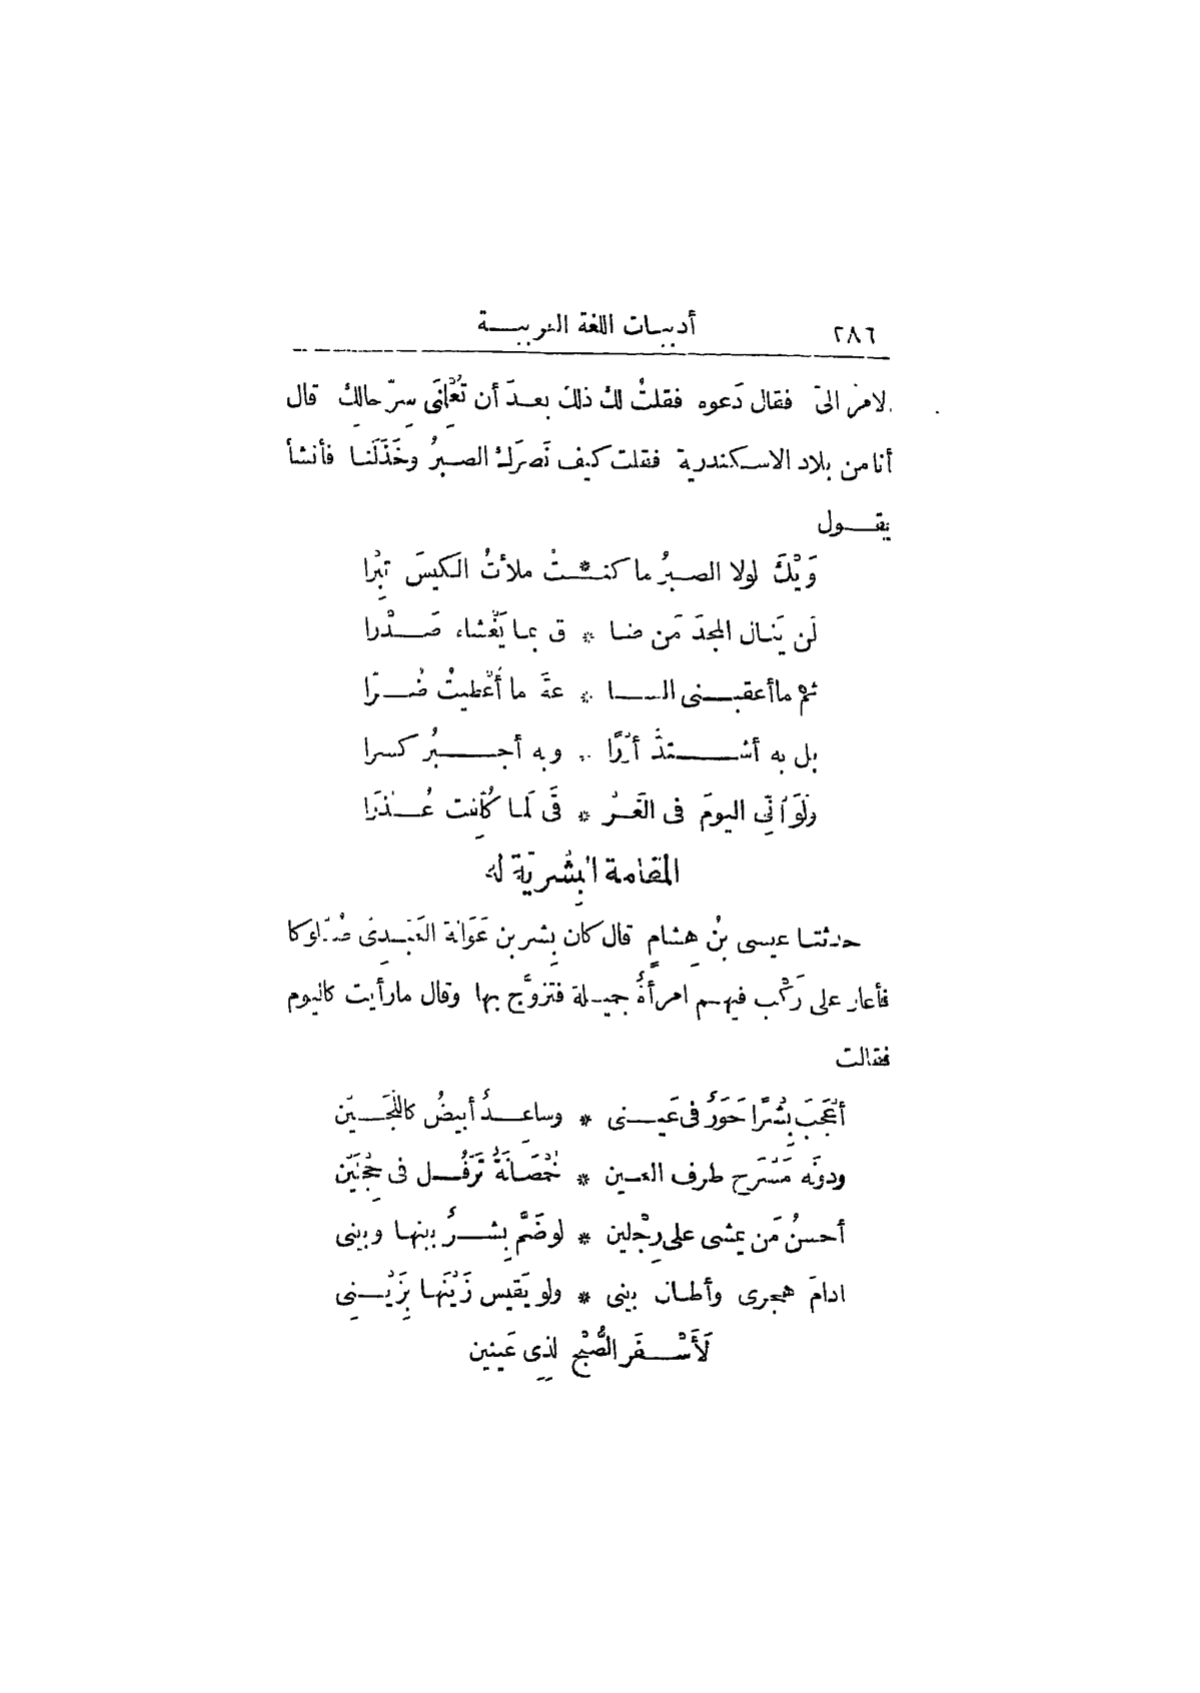 ٢٨٦ أدبيات اللغة العربية
لامر الىّ فقال دَعوه فقلتُ لك ذلك بعدَ أن تُعْلِمَنى سِرّ حالِك قال
أنا من بلاد الاسكندرية فقلت كيف نَصَرَك الصبرُ وخَذَلَنا فأنشأ
يقول
وَيْكَ لولا الصبرُ ما كنـ * ـتُ ملأتُ الكيسَ تِبْرا
لَن يَنال المجدَ مَن ضا * ق بما يَغْشاه صَدْرا
ثم ما أعقبنى السا * عةَ ما أُعْطيتُ ضُرّا
بل به أشتدّ أزْرًا * وبه أجبُر كسرا
ولَوَ آنّى اليومَ فى الغَرْ * قَى لَما كُلِّفتُ عُذْرَا
المقامة البِشْريّة له
حدثنا عيسى بنُ هِشامٍ قال كان بِشر بن عَوَانة العَبْدِىّ صُعْلوكا
فأغار على رَكْب فيهم امرأةٌ جميلة فتزوَّج بها وقال ما رأيت كاليوم
فقالت
أعْجَبَ بِشْرًا حَوَرٌ فى عَينى * وساعِدٌ أبيضُ كاللُّجَيْن
ودونَه مَسْرَح طرف العين * خُمْصَانَةٌ تَرْفُل فى حِجْلَيْن
أحسنُ مَن يمشى على رِجْلين * لو ضَمَّ بِشرٌ بينها وبينى
ادامَ هجرى وأطال بينى * ولو يَقيس زَيْنَها بِزَيْنى
لَأَسْفَر الصُّبْح لِذِى عَينين